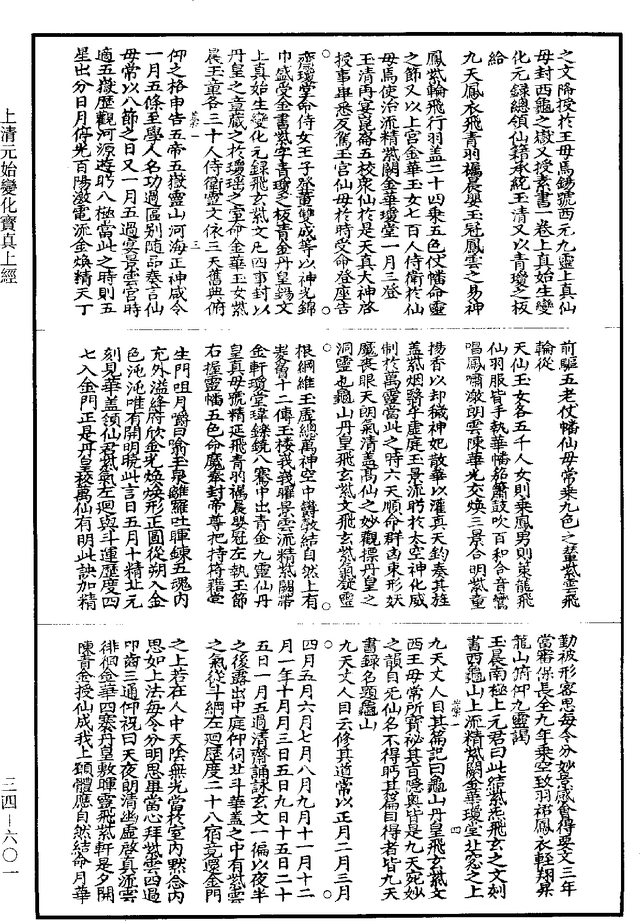 之文降授於王母焉錫號西元九靈上真仙
母封西龜之嶽又授素書一卷上真始生變
化元錄總領仙籍承統玉清又以青瓊之板
給
九天鳳衣飛青羽襦晨嬰玉冠鳳雲之舄神
鳳紫輪飛行羽蓋二十四乘五色仗幡命靈
之節又以上宮金華玉女七百人侍衛於仙
母焉使治流精紫闕金華瓊堂一月三登
玉清再宴崑崙五校眾仙於是天真大神啟
授事畢悉反駕玉宮仙母於時受命登座告
齋瓊堂命侍女王子登董雙成等以神光錦
巾盛受金書紫字青瓊之板青金丹皇錫文
上真始生變化元錄飛玄紫文凡四事封以
丹皇之章藏之於瓊瑤之室命金華玉女紫
三
晨玉童各三十人侍衛靈文依三天舊典俯
仰之格申告五帝五嶽靈山河海正神咸令
一月五條至學人名功過區別隨品奏言仙
母常以八節之日又一月五過宴景雲宮時
適五嶽歷觀河源遊眄八極當此之時則五
星出分日月停光百陽激電流金煥精天丁
前驅五老仗幡仙母常乘九色之輦紫雲飛
輪從
天仙玉女各五千人女則乘鳳男則策龍飛
仙羽服皆手執華幡銘簫鼓吹百和合音鸞
唱鳳嘯激朗雲陳華光交煥三景合明紫童
揚香以却穢神妃散華以灌真天鈞奏其旌
蓋紫烟翳乎虛庭玉景流眄於太空神化威
制於萬靈當此之時六天順命群凶束形妖
魔喪眼天朗氣清蓋高仙之妙觀摽丹皇之
洞靈也龜山丹皇飛玄紫文飛玄紫氣凝靈
根網維玉虛總萬神空中結自然上有
十二傅玉樓峩峩曜景雲流精紫闕帶
金軒瓊堂瑋鑠鏡八騫中出青金九靈仙丹
皇真母號精延飛青羽襦晨嬰冠左執玉節
右握靈幡五色命魔奉封帝尊把持將
生門咀月嚼日喻玉泉離羅吐暉練五魂內
充外溢絳府欣金光煥煥形正圓從朔入金
色沌沌唯有開明晚此言日五月十精廿元
刻見華蓋領仙君紫氣左迴與斗運歷度四
七入金門正是丹皇校萬仙有明此訣加精
勤被形客思每令分妙景齋會得要文三年
當審保長全九年乘空致羽裙鳳衣輕翔昇
龍山俯仰九靈謁
玉晨南極上元君曰此結紫炁飛玄之文刻
書西龜山上流精紫闕金華瓊堂北窓之上
四
九天丈人曰其篇記曰龜山丹皇飛玄紫文
西王母常所寶祕其百隱奧皆是九天宛妙
之韻自无仙名不得眄其篇目得者皆九天
書錄名題龜山
九天丈人曰云修其道常以正月二月三月
四月五月六月七月八月九月十一月十二
月一年十月月三日五日九日十五日二十
五日一月五過清齋誦詠玄文一徧以夜半
之後露出中庭仰伺北斗華蓋之中有紫雲
之氣從斗綱左迴歷度二十八宿竟還金門
之上若在人中天陰無光當於室內默念內
思如上法每令分明思畢當心拜紫雲四過
叩齒三通仰祝曰天夜朗清幽虛啟真流雲
徘徊金華四騫丹皇敷暉靈飛紫軒是夕開
陳青金授仙成我上願體應自然結命月華
上清元始變化寶真上經
三四—六〇一